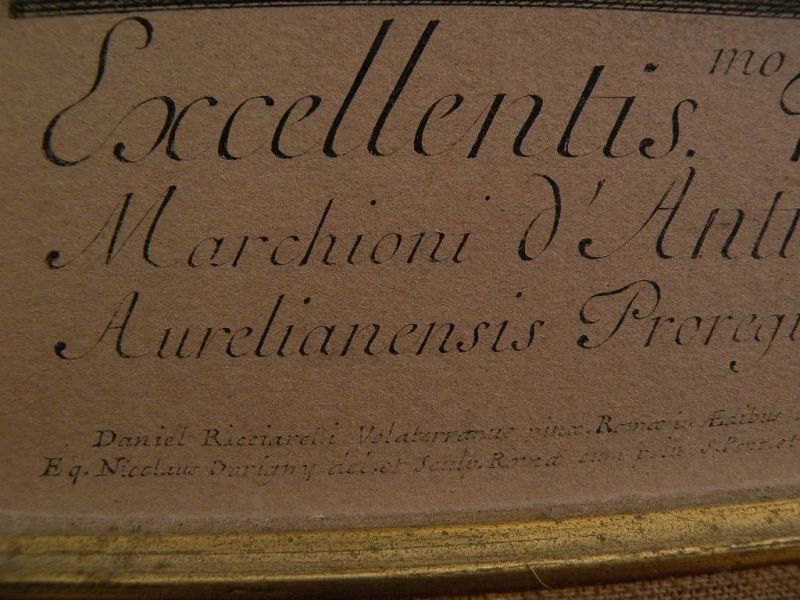 Excellentis.mo
Marchioni d'Anti
Aurelianensis Proregi
Daniel Ricciarelli Volaterranus pinx. Romæ in Ædibus
Eq. Nicolaus Dorigny del. et Sculp. Romæ cum priv. S. Pont. et